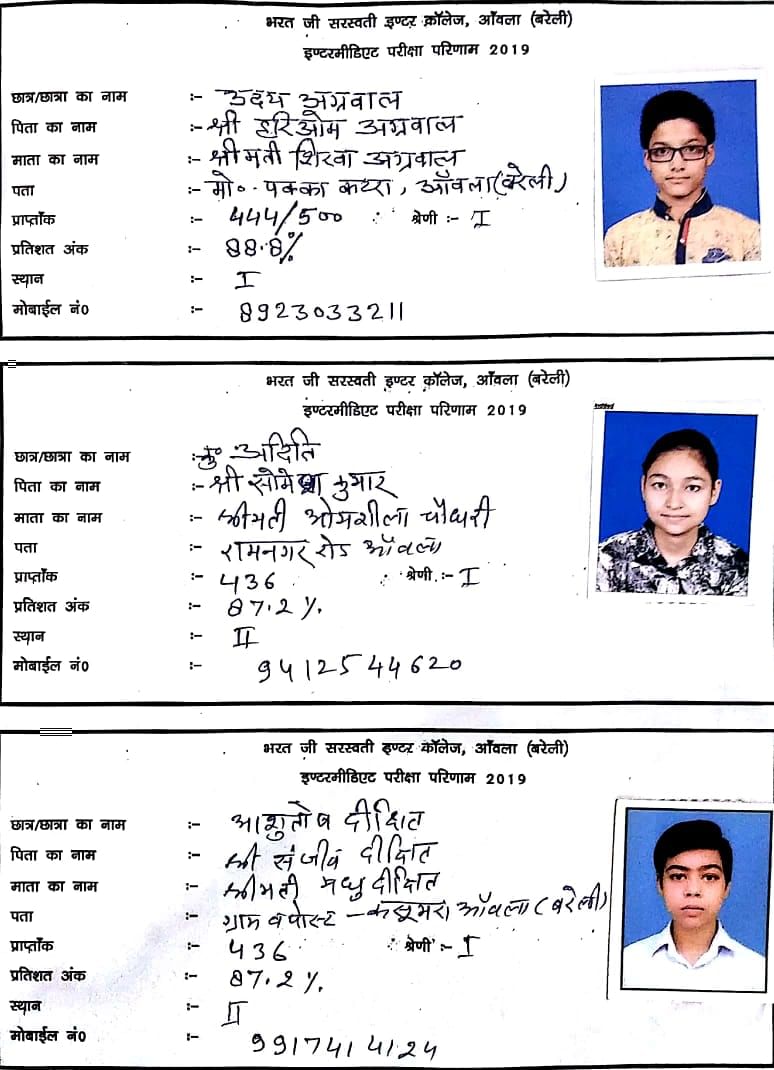 भरत जी सरस्वती इण्टर कॉलेज, आँवला (बरेली)
इण्टरमीडिएट परीक्षा परिणाम 2019
छात्र/छात्रा का नाम :- उदय अग्रवाल
पिता का नाम :- श्री हरिओम अग्रवाल
माता का नाम :- श्रीमती शिखा अग्रवाल
पता :- मो०. पक्का कटरा, आँवला (बरेली)
प्राप्ताँक :- 444/500 श्रेणी :- I
प्रतिशत अंक :- 88.8%
स्थान :- I
मोबाईल नं0 :- 8923033211
भरत जी सरस्वती इण्टर कॉलेज, आँवला (बरेली)
इण्टरमीडिएट परीक्षा परिणाम 2019
छात्र/छात्रा का नाम :- कु० अदिति
पिता का नाम :- श्री सोमेश कुमार
माता का नाम :- श्रीमती ओमशीला चौधरी
पता :- रामनगर रोड आँवला
प्राप्ताँक :- 436 श्रेणी :- I
प्रतिशत अंक :- 87.2 %.
स्थान :- II
मोबाईल नं0 :- 9412544620
भरत जी सरस्वती इण्टर कॉलेज, आँवला (बरेली)
इण्टरमीडिएट परीक्षा परिणाम 2019
छात्र/छात्रा का नाम :- आशुतोष दीक्षित
पिता का नाम :- श्री संजीव दीक्षित
माता का नाम :- श्रीमती मधु दीक्षित
पता :- ग्राम व पोस्ट - आँवला (बरेली)
प्राप्ताँक :- 436 श्रेणी :- I
प्रतिशत अंक :- 87.2 %.
स्थान :- II
मोबाईल नं0 :- 9917414124